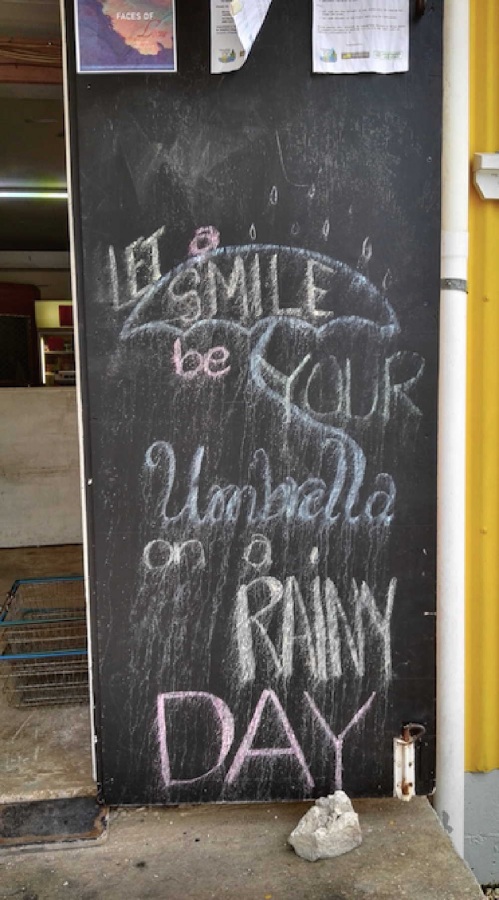 FACES OF
LET a
SMILE
be YOUR
Umbrella
on a
RAINY
DAY